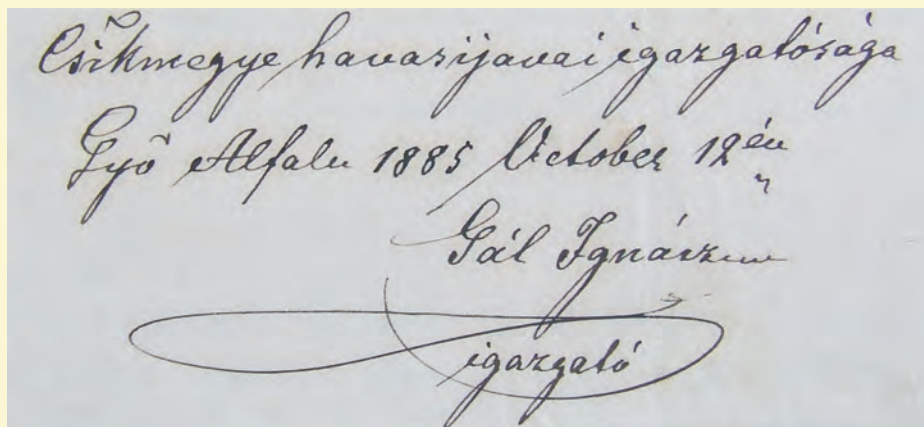 Csíkmegye havasijavai igazgatósága
Győ Alfalu 1885 October 12 én
Gál Ignácz
igazgató